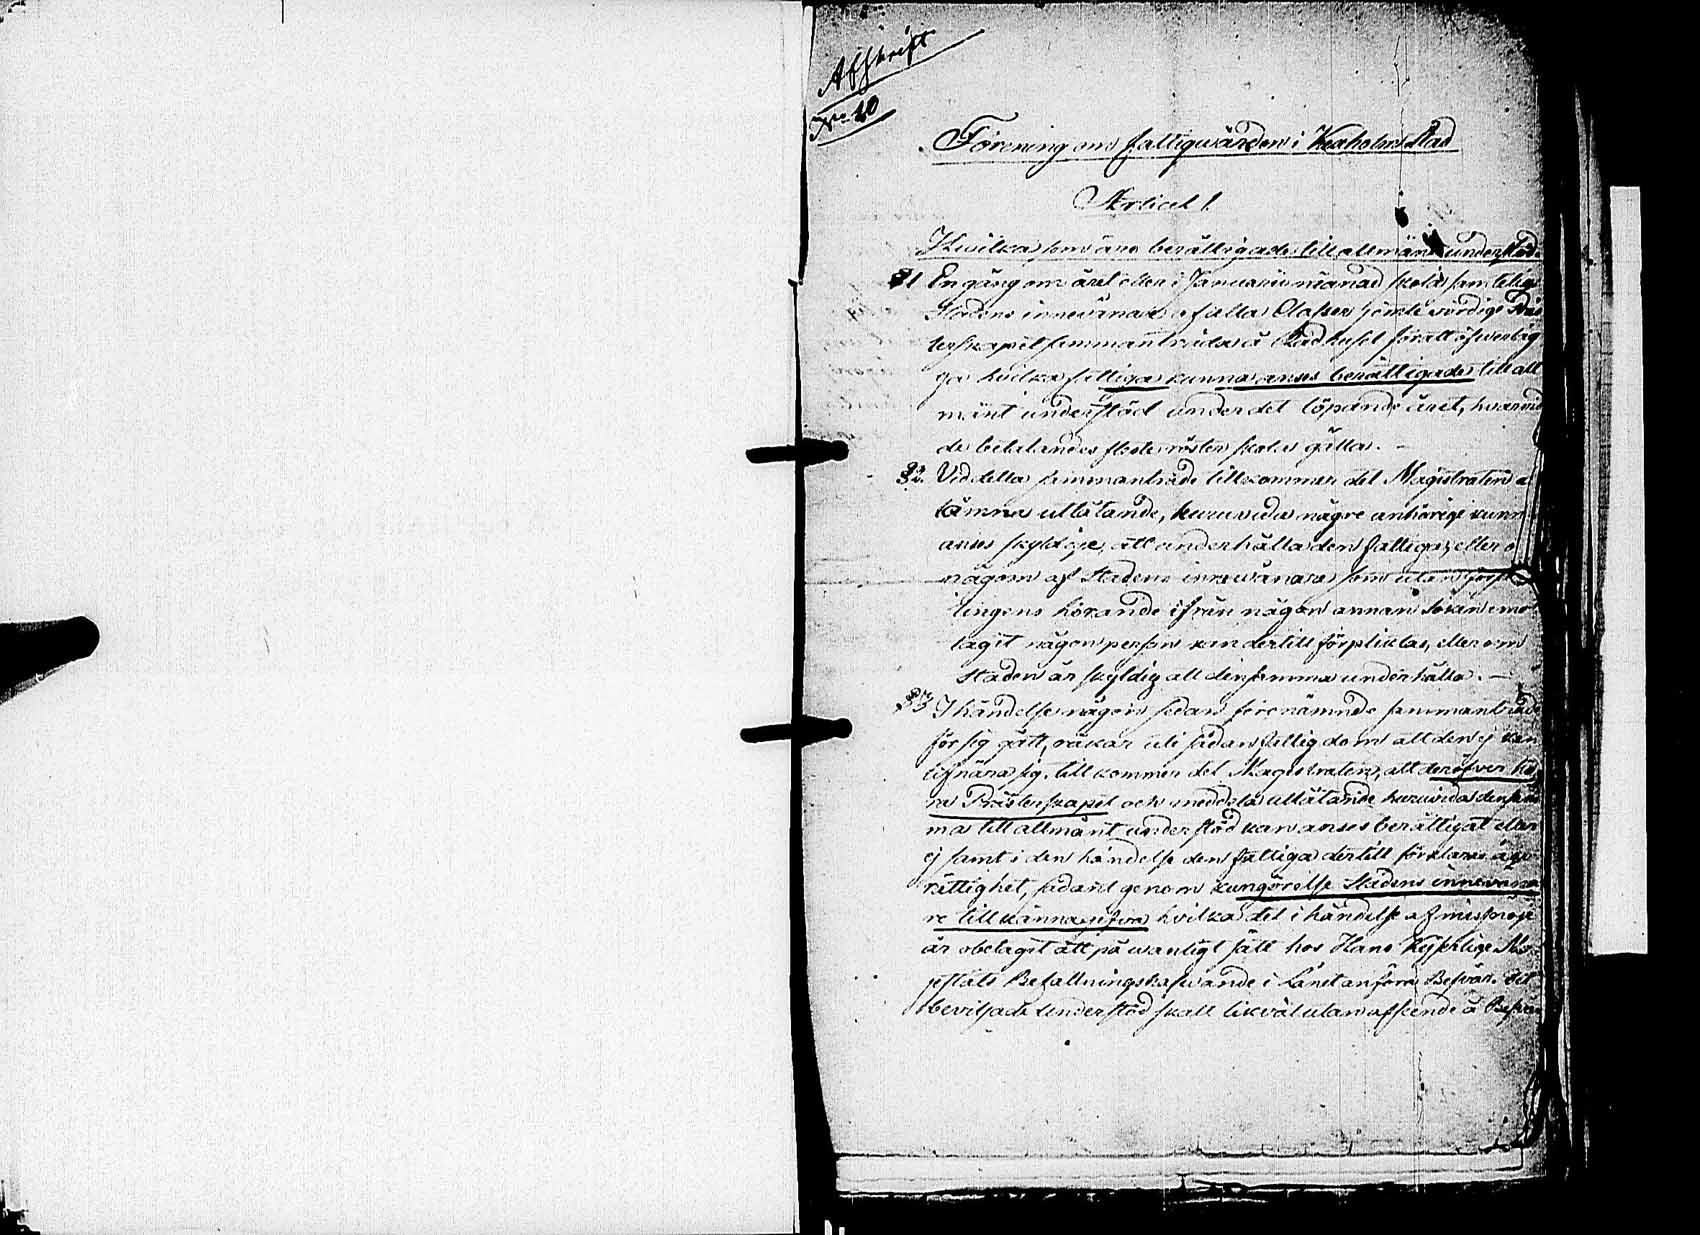 Afskrift
No 20
Förening om fattigvården i Kexholms Stad
Articel 1.
Hwilka som äro berättigade till allmänt understöd.
§1 En gång om året eller i Januarii månad skola samtelige
Stadens innevånare af alla Classer jemte wördige Prä
sterskapet sammanträda å Rådhuset för att öfverläg
ga hvilka fattiga kunna anses berättigade till all
mänt understöd under det löpande året, hvarvid
de betalandes fleste röster skola gälla. –
§2. Vid detta sammanträde tillkommer det Magistraten a
lämna utlåtande, huruvida någre anhörige kunn
anses skyldige att underhålla den fattige, eller
någon af Stadens innevånare som utan förs
lingens hörande ifrån någon annan Sokn emo
tagit någon person kan dertill förpliktas, eller om
Staden är skyldig att densamma underhålla. –
§3 I händelse någon sedan förenämnde sammanträde
för sig gått, råkar uti sådan fattigdom att den ej kan
lifnära sig, till kommer det Magistraten, att deröfver hö
ra Prästerskapet och meddela utlåtande huruvida densam
ma till allmänt understöd kan anses berättigat eller
ej samt i den händelse den fattiga dertill förklaras äga
rättighet, sådant genom kungörelse Stadens innevåna
re tillkännagifva hvilka det i händelse af missnöje
är obetaget att på wanligt sätt hos Hans Kejserlige Ma
jestäts Befallningshafwande i Länet anföra Besvär. Det
beviljade Understöd skall likväl utan afseende å Besvär